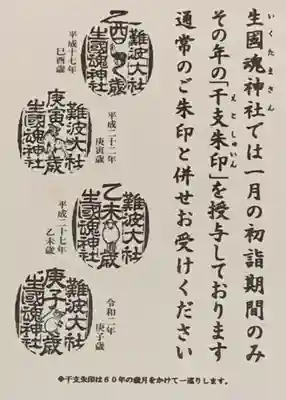 いくたまさん
生國魂神社では一月の初詣期間のみ
えとしゅいん
その年の「干支朱印」を授与しております
通常のご朱印と併せお受けください
難波大社
乙酉歳
生國魂神社
平成十七年
巳酉歳
難波大社
庚寅歳
生國魂神社
平成二十二年
庚寅歳
難波大社
乙未歳
生國魂神社
平成二十七年
乙未歳
難波大社
庚子歳
生國魂神社
令和二年
庚子歳
※干支朱印は60年の歳月をかけて一巡りします。